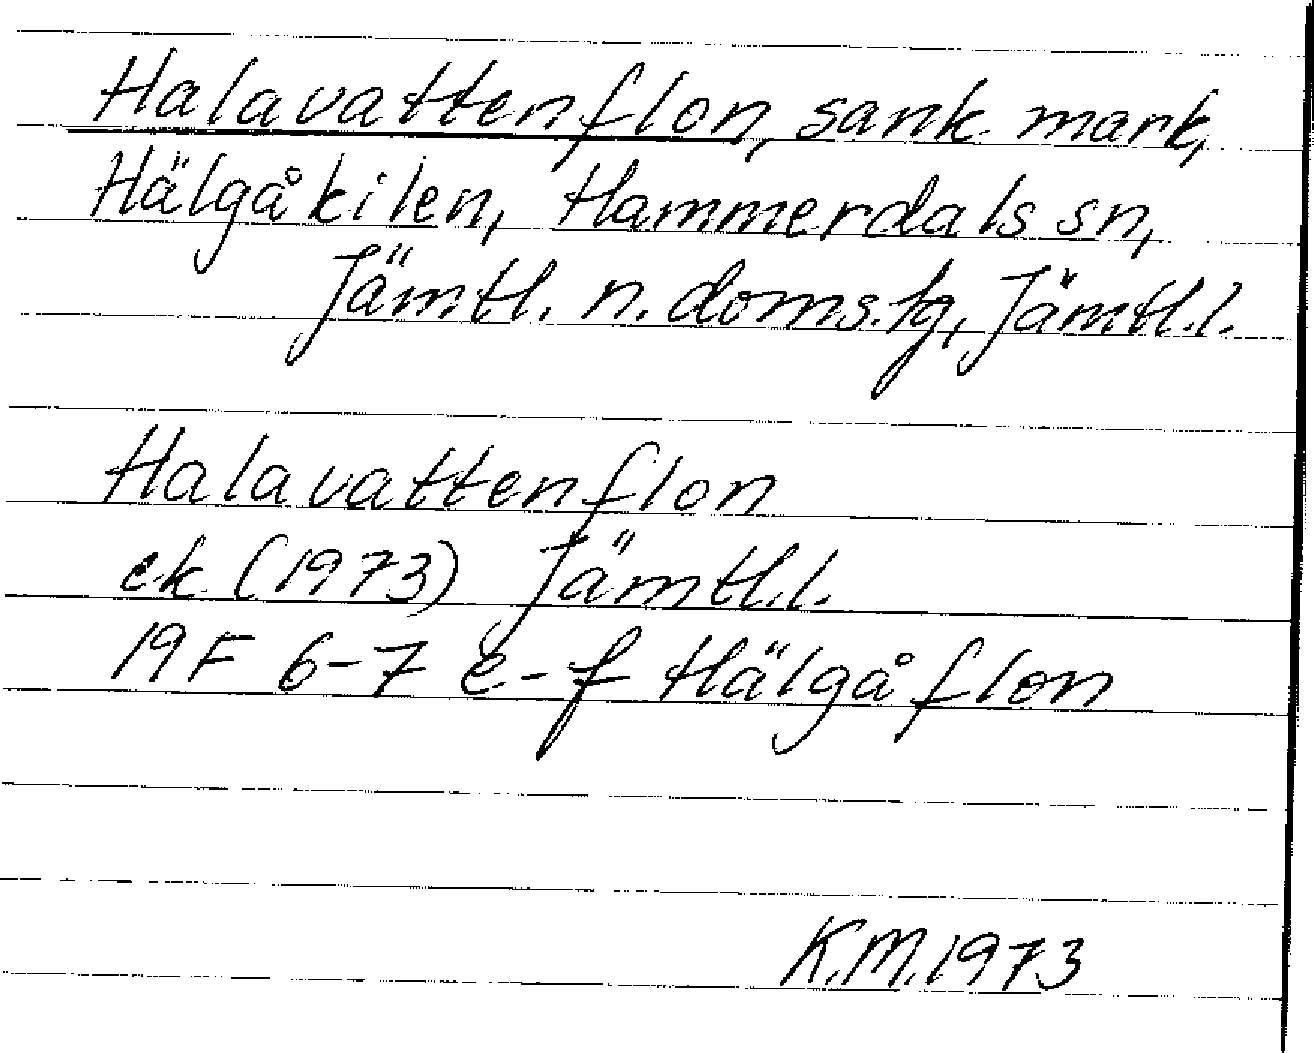 Halavattenflon, sank mark,
Hälgåkilen, Hammerdals sn,
Jämtl. n. doms.tg, Jämtl.l.
Halavattenflon
ek (1973) Jämtl.l.
19F 6-7 e-f Hälgåflon
K.M.1973